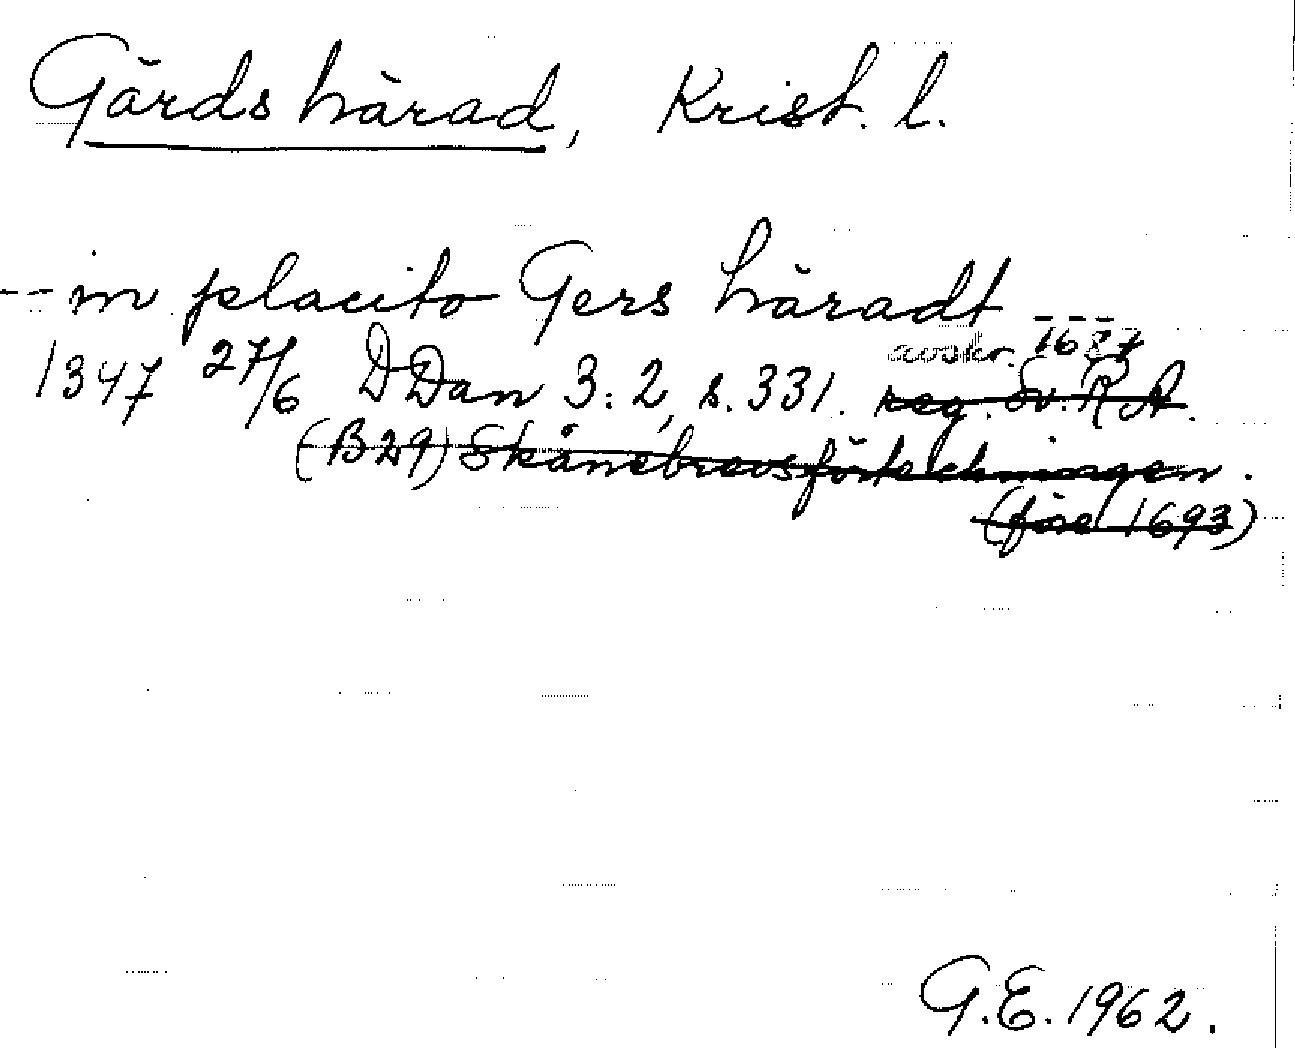 Gärds härad, Krist. l.
-- in placito Gers häradt ---
avskr. 1687
1347 27/6 DDan 3:2, s. 331. reg. Sv. RA.
(B29) Skånebrevsförteckningen.
(före 1693)
G.E. 1962.